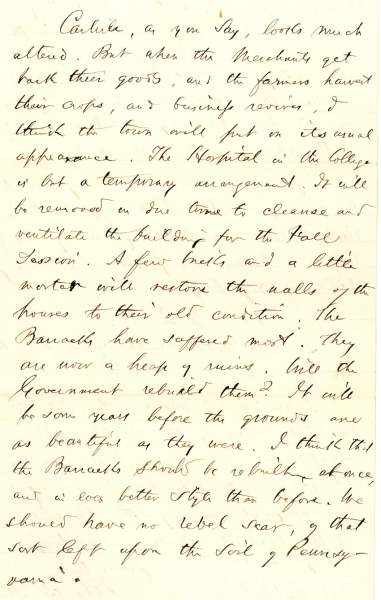 Carlisle, as you say, looks much
altered. But when the Merchants get
back their goods, and the farmers harvest
their crops, and business revives, I
think the town will put on its usual
appearance. The Hospital in the College
is but a temporary arrangement. It will
be removed in due time to cleanse and
ventilate the building for the Fall
Session. A few bricks and a little
mortar will restore the walls of the
houses to their old condition. The
Barracks have suffered most. They
are now a heap of ruins. Will the
Government rebuild them? It will
be some years before the grounds are
as beautiful as they were. I think that
the Barracks should be rebuilt, at once,
and in even better style than before. We
should have no rebel scar, of that
sort left upon the soil of Pennsy-
vania.